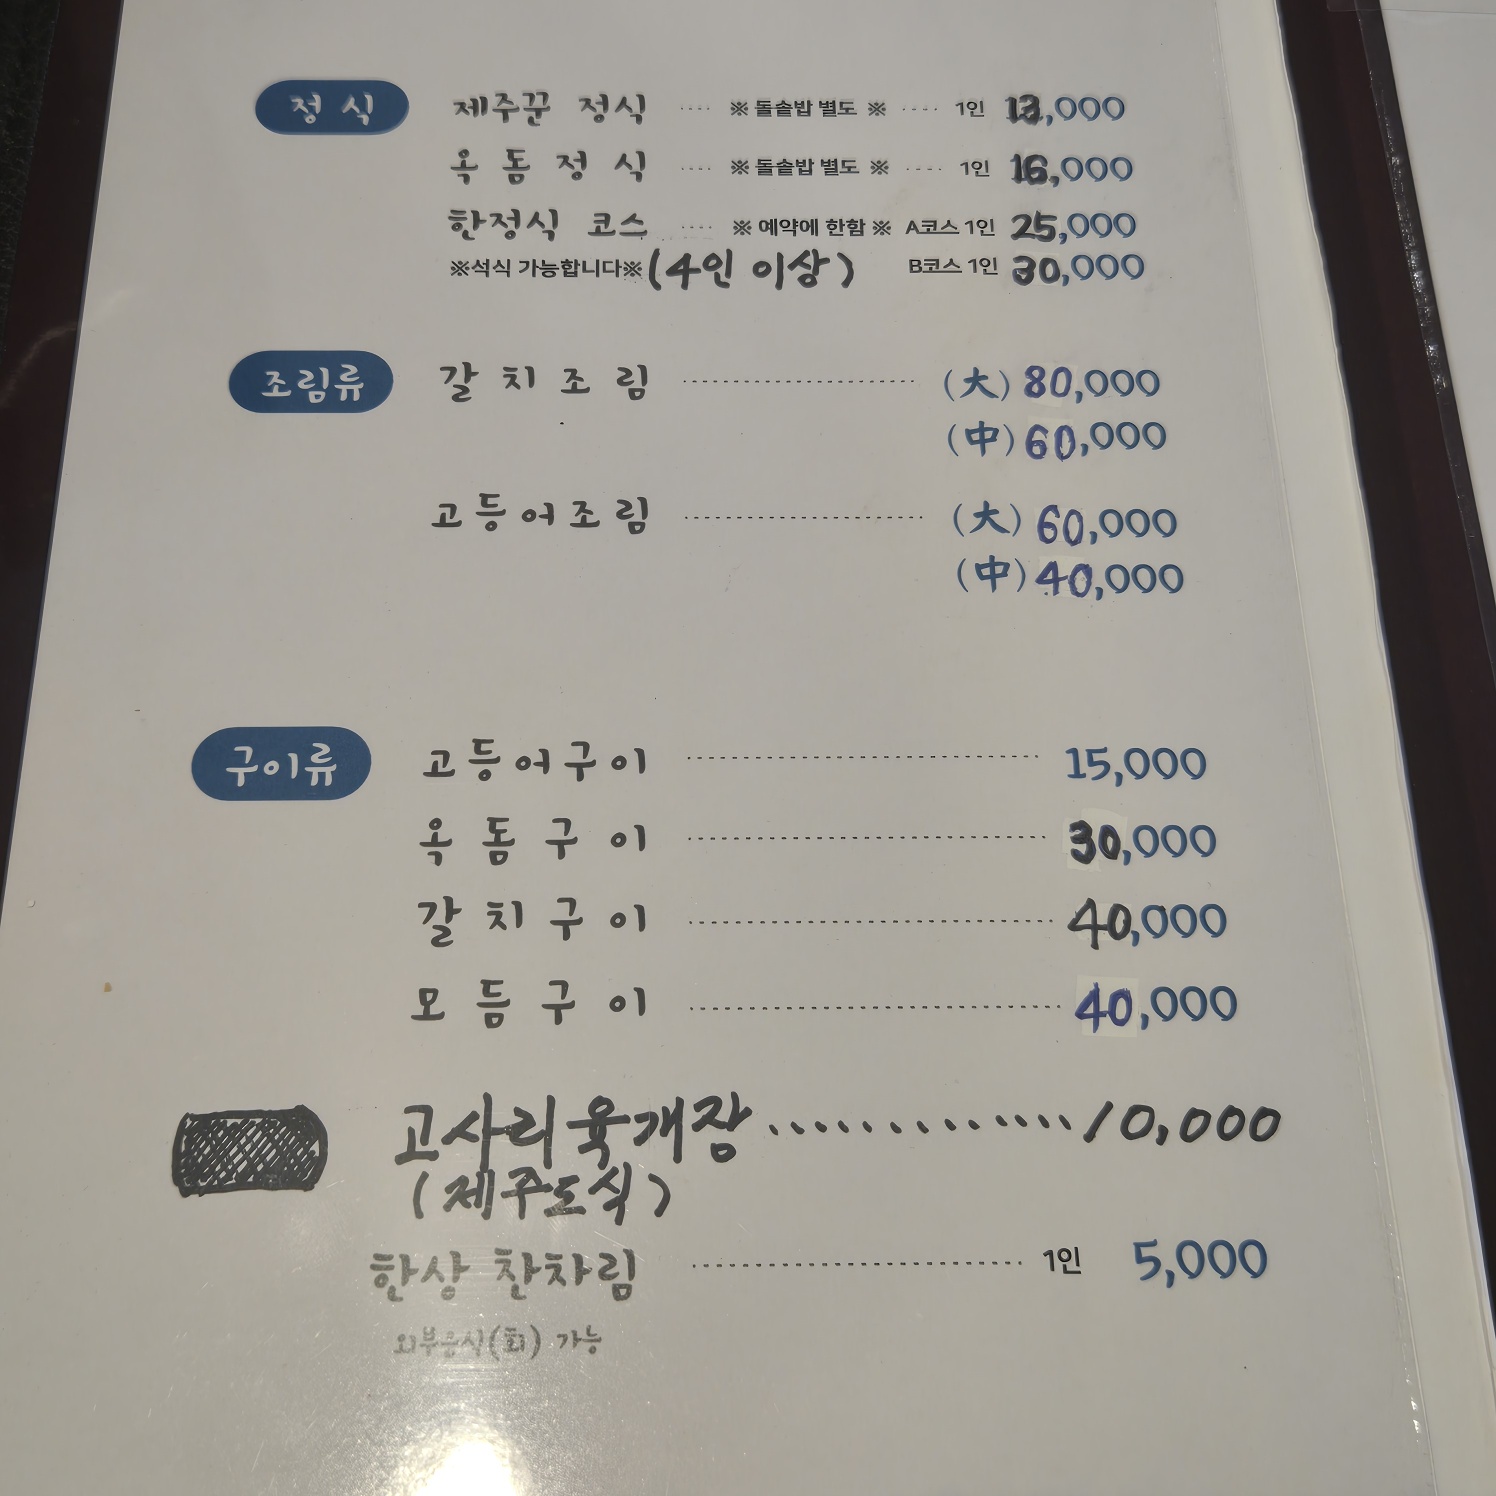 정식 제주꾼 정식 ···· ※ 돌솥밥 별도 ※ ···· 1인 13,000
옥돔정식 ···· ※ 돌솥밥 별도 ※ ···· 1인 16,000
한정식 코스 ···· ※ 예약에 한함 ※ A코스 1인 25,000
※석식 가능합니다※ (4인 이상) B코스 1인 30,000
조림류 갈치조림 (大) 80,000
(中) 60,000
고등어조림 (大) 60,000
(中) 40,000
구이류 고등어구이 15,000
옥돔구이 30,000
갈치구이 40,000
모듬구이 40,000
고사리육개장 10,000
(제주도식)
한상 찬차림 1인 5,000
외부음식(회) 가능